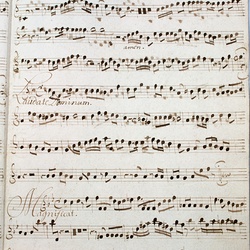 amen.
Laudate Dominum.
Magnificat.